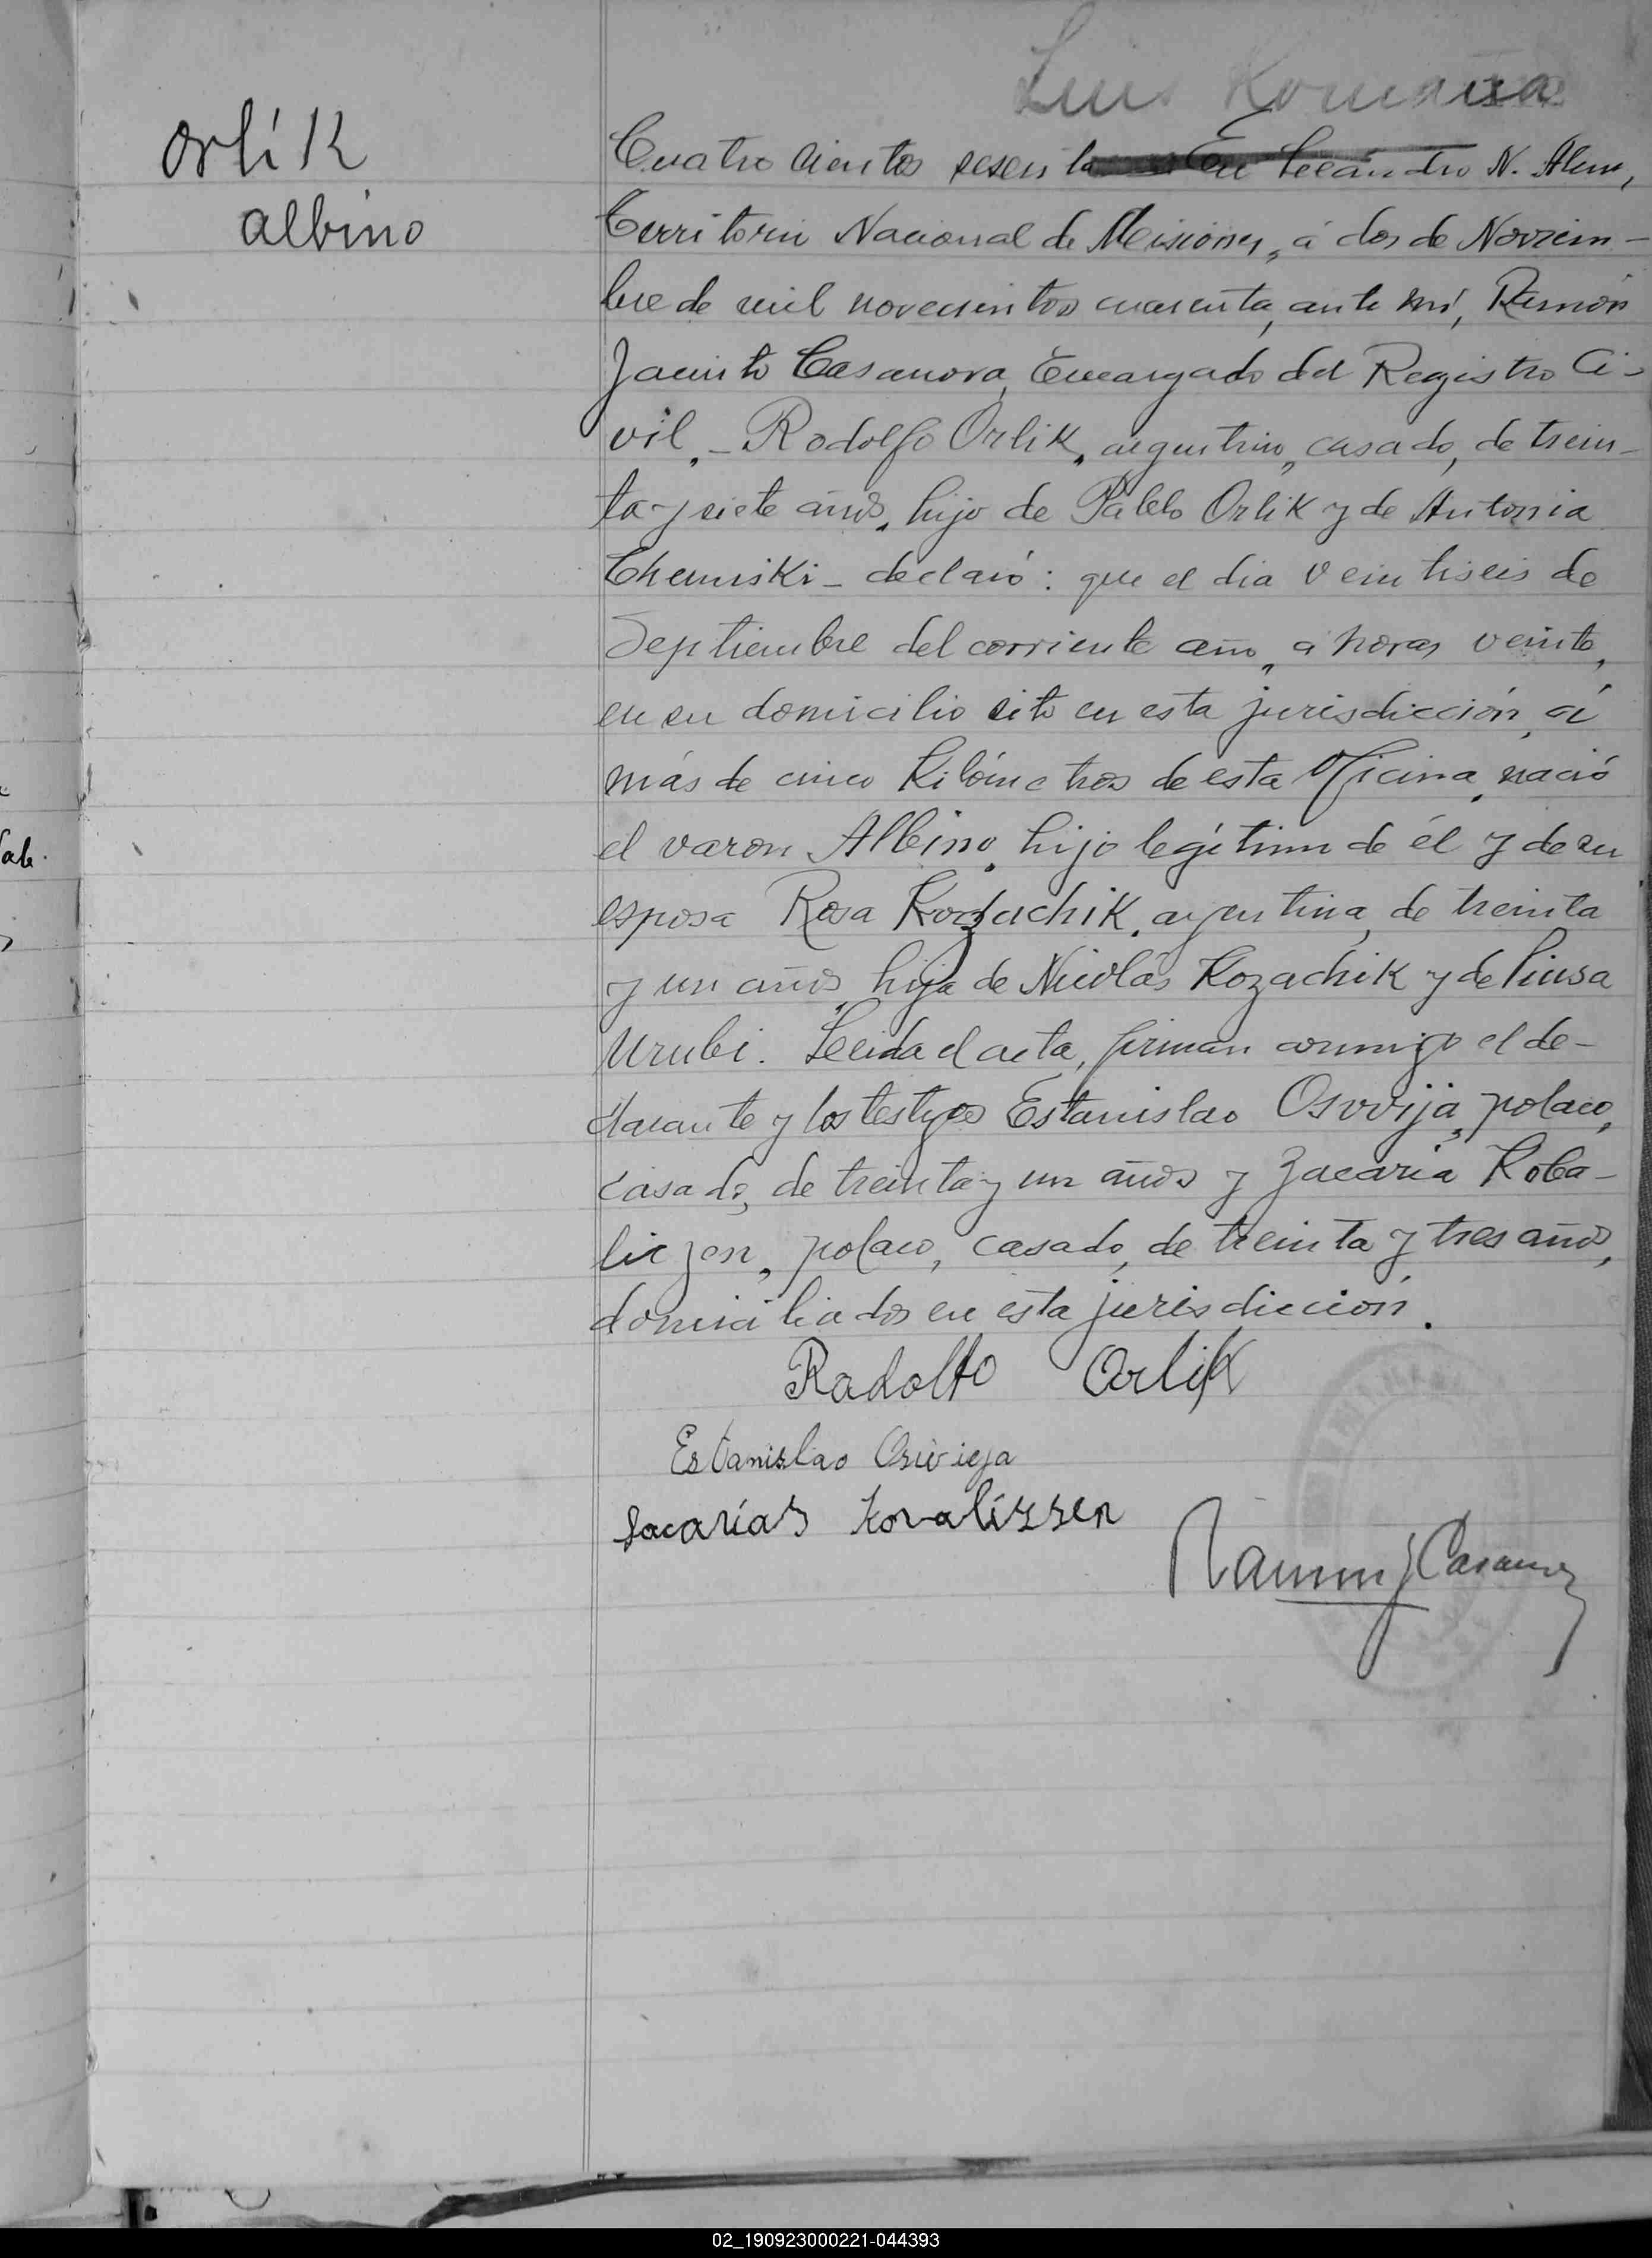 Luis Romaña
Orlik
albino
Cuatro cientos sesenta En Leandro N. Alem,
Territorio Nacional de Misiones, á dos de Noviem-
bre de mil novecientos cuarenta, ante mi, Ramón
Jacinto Casanova, Encargado del Registro Ci-
vil,- Rodolfo Orlik, argentino, casado, de trein-
ta y siete años, hijo de Pablo Orlik y de Antonia
Chemiski - declaró: que el dia veintiseis de
Septiembre del corriente año, a horas veinte,
en su domicilio sito en esta jurisdicción, á
más de cinco Kilómetros de esta Oficina, nació
el varon Albino, hijo legítimo de él y de su
esposa Rosa Kozachik, argentina, de treinta
y un años, hija de Nicolás Kozachik y de
Urubi. Leida el acta, firman conmigo el de-
clarante y los testigos Estanislao Osvvija, polaco,
casado, de treinta y un años y Zacaria Koba-
liczen, polaco, casado, de treinta y tres años,
domiciliados en esta jurisdicción.
Radolfo Orlik
Estanislao Osiwieja
Sacarías Kovalizzen
Ramon J Casanova
02_190923000221-044393